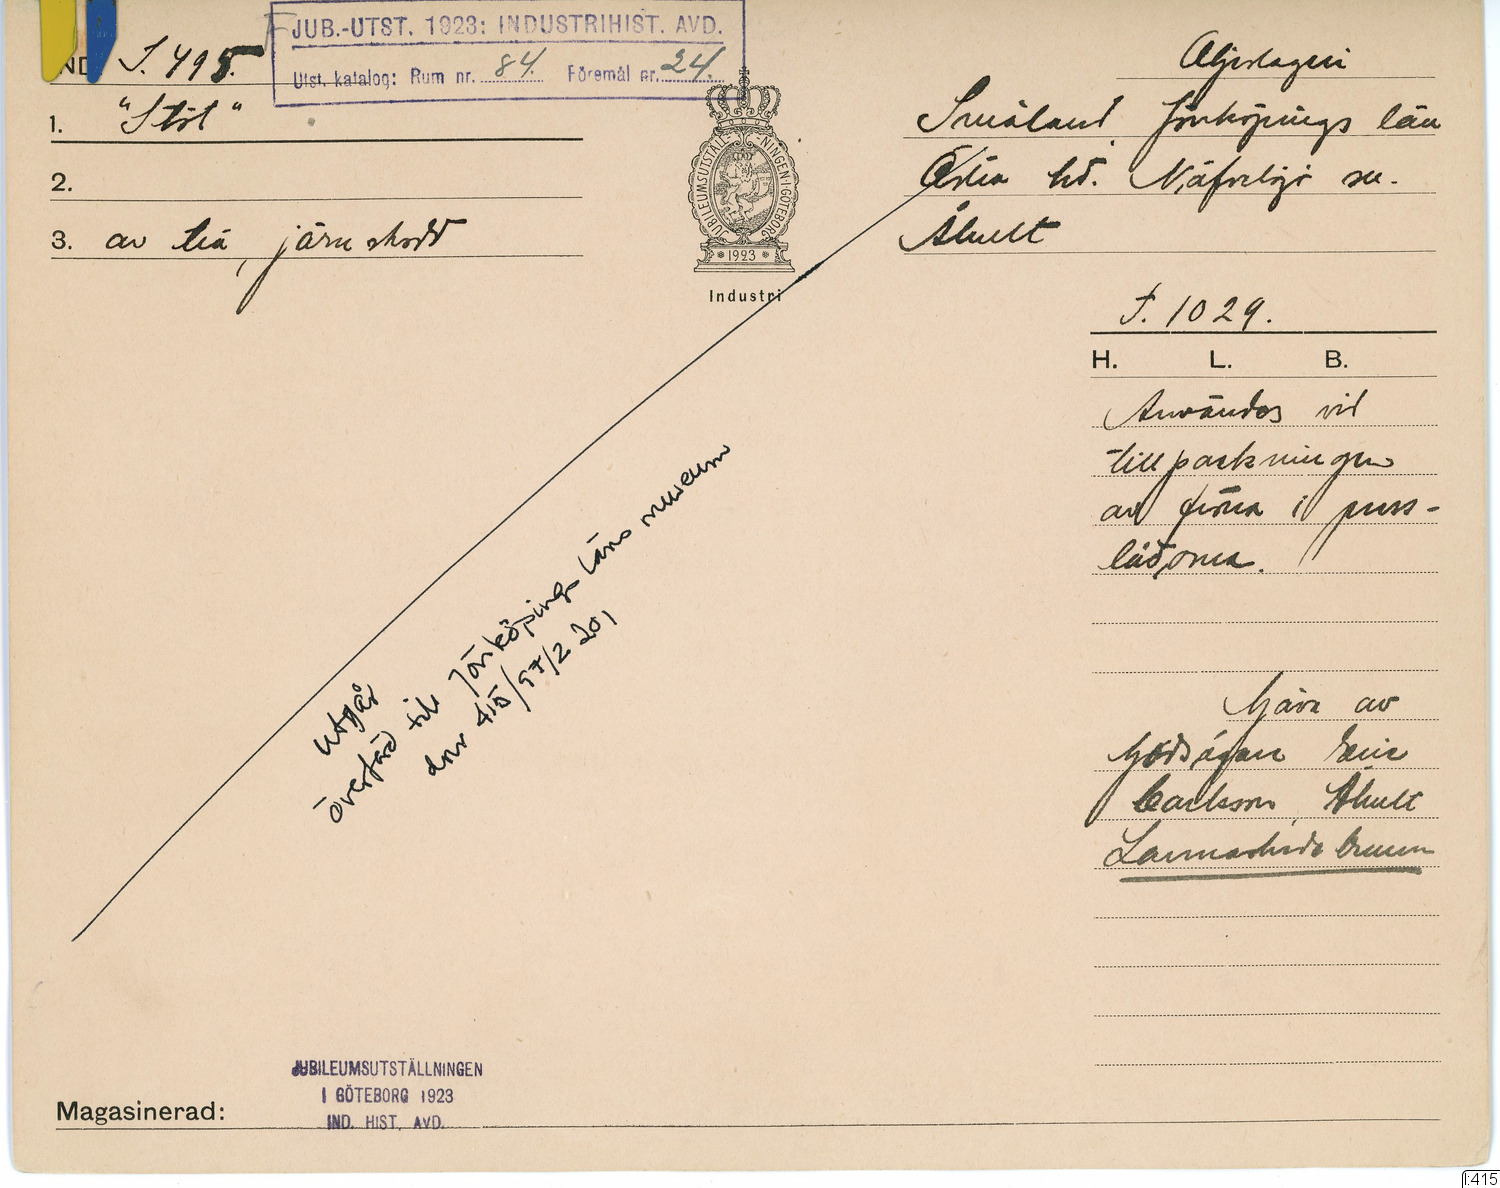 JUB.-UTST. 1923: INDUSTRIHIST. AVD.
Utst. katalog: Rum nr. 84. Föremål nr. 24.
IND. I. 495.
1. "Stöt"
2.
3. av trä, järnskodd
JUBILEUMSUTSTÄLL-NINGEN·I·GÖTEBORG
1923
Industri
Oljeslageri
Småland Jönköpings län
Östra hd. Näfvelsjö sn.
Åhult
F. 1029.
H. L. B.
Användes vid
tillpackningen
av fröna i press-
lådorna.
Gåva av
Godsägare
Carlson, Åhult
Lannaskede
utgår
överförd till Jönköpings läns museum
dnr 415/97/2 201
JUBILEUMSUTSTÄLLNINGEN
I GÖTEBORG 1923
IND. HIST. AVD.
Magasinerad:
I:415